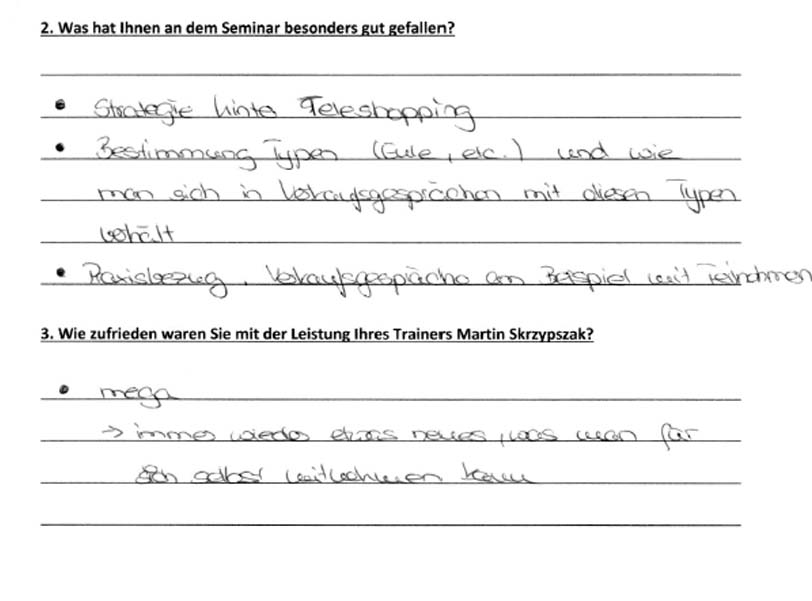 2. Was hat Ihnen an dem Seminar besonders gut gefallen?
• Strategie hinter Teleshopping
• Bestimmung Typen (Eule, etc.) und wie
man sich in Verkaufsgesprächen mit diesen Typen
verhält
• Praxisbezug, Verkaufsgespräche am Beispiel mit Teilnehmen
3. Wie zufrieden waren Sie mit der Leistung Ihres Trainers Martin Skrzypszak?
• mega
→ immer wieder etwas neues, was man für
sich selbst mitnehmen kann